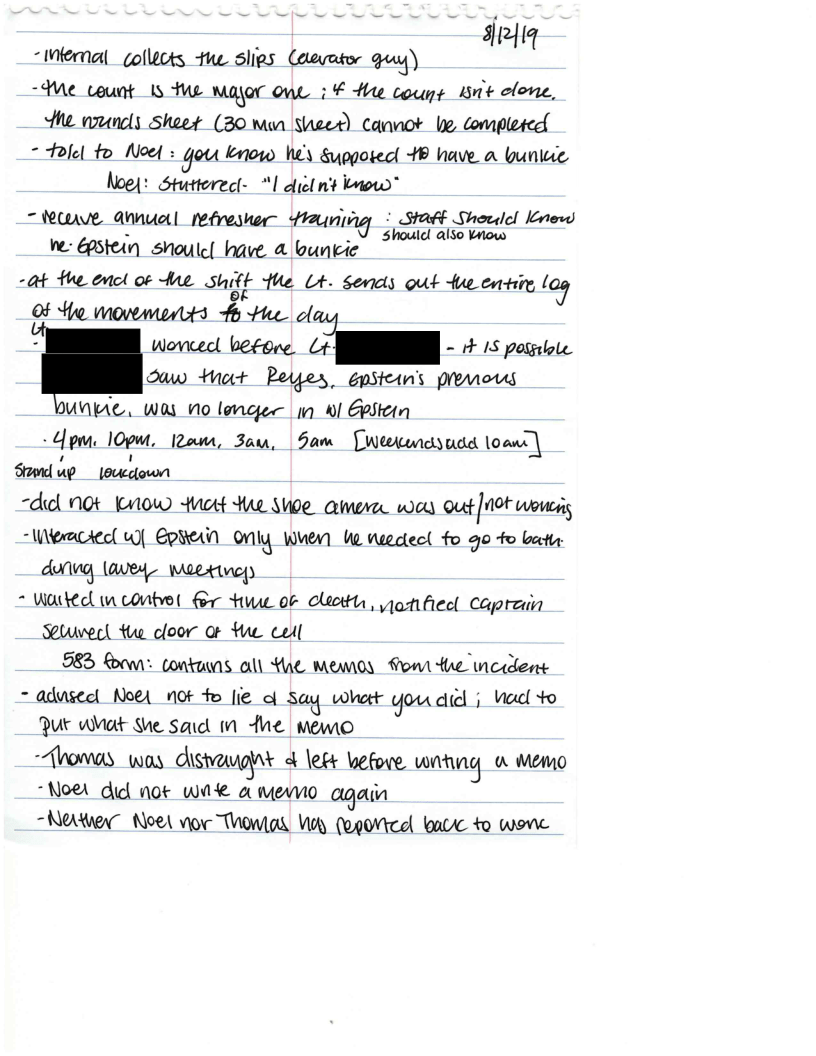 8/12/19
- internal collects the slips (elevator guy)
- the count is the major one ; if the count isn't done.
the rounds sheet (30 min sheet) cannot be completed
- told to Noel : you know he's supposed to have a bunkie
Noel: stuttered- "I didn't know"
- receive annual refresher training : staff should know
should also know
he. Epstein should have a bunkie
- at the end of the shift the Lt. sends out the entire log
of
of the movements to the day
Lt
- worked before Lt. - it is possible
saw that Reyes, Epstein's previous
bunkie, was no longer in w/ Epstein
· 4pm, 10pm, 12am, 3am, 5am [weekends add 10am]
Stand up lockdown
- did not know that the shoe amera was out/not working
- interacted w/ Epstein only when he needed to go to bath.
during lawey meetings
- waited in control for time of death, notified captain
secured the door of the cell
583 form: contains all the memos from the incident
- advised Noel not to lie & say what you did ; had to
put what she said in the memo
- Thomas was distraught & left before writing a memo
- Noel did not write a memo again
- Neither Noel nor Thomas has reported back to work